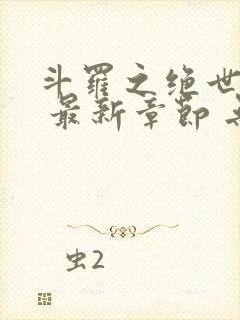 斗罗之绝世
最新章节
虫2